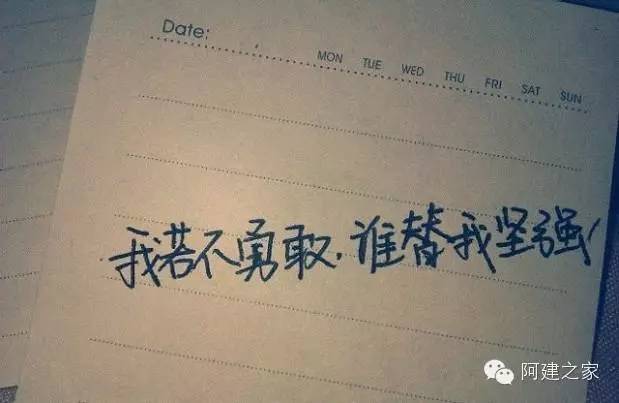 Date:
MON TUE WED THU FRI SAT SUN
我若不勇敢.谁替我坚强!
阿建之家